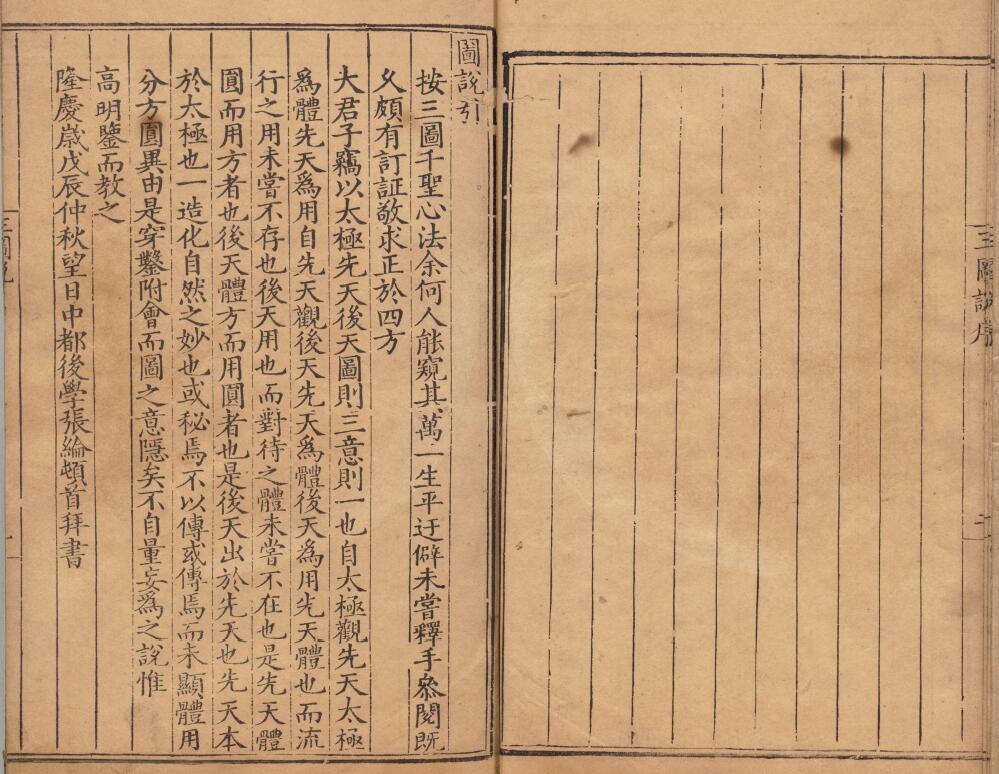 三圖說序
二
圖說引
按三圖千聖心法余何人能窺其萬一生平迂僻未嘗釋手叅閱既
乆頗有訂証敬求正於四方
大君子竊以太極先天後天圖則三意則一也自太極觀先天太極
爲體先天爲用自先天觀後天先天爲體後天爲用先天體也而流
行之用未嘗不存也後天用也而對待之體未嘗不在也是先天體
圓而用方者也後天體方而用圓者也是後天出於先天也先天本
於太極也一造化自然之妙也或秘焉不以傳或傳焉而未顯體用
分方圓異由是穿鑿附會而圖之意隱矣不自量妄爲之說惟
高明鑒而教之
隆慶歲戊辰仲秋望日中都後學張綸頓首拜書
三圖說
一